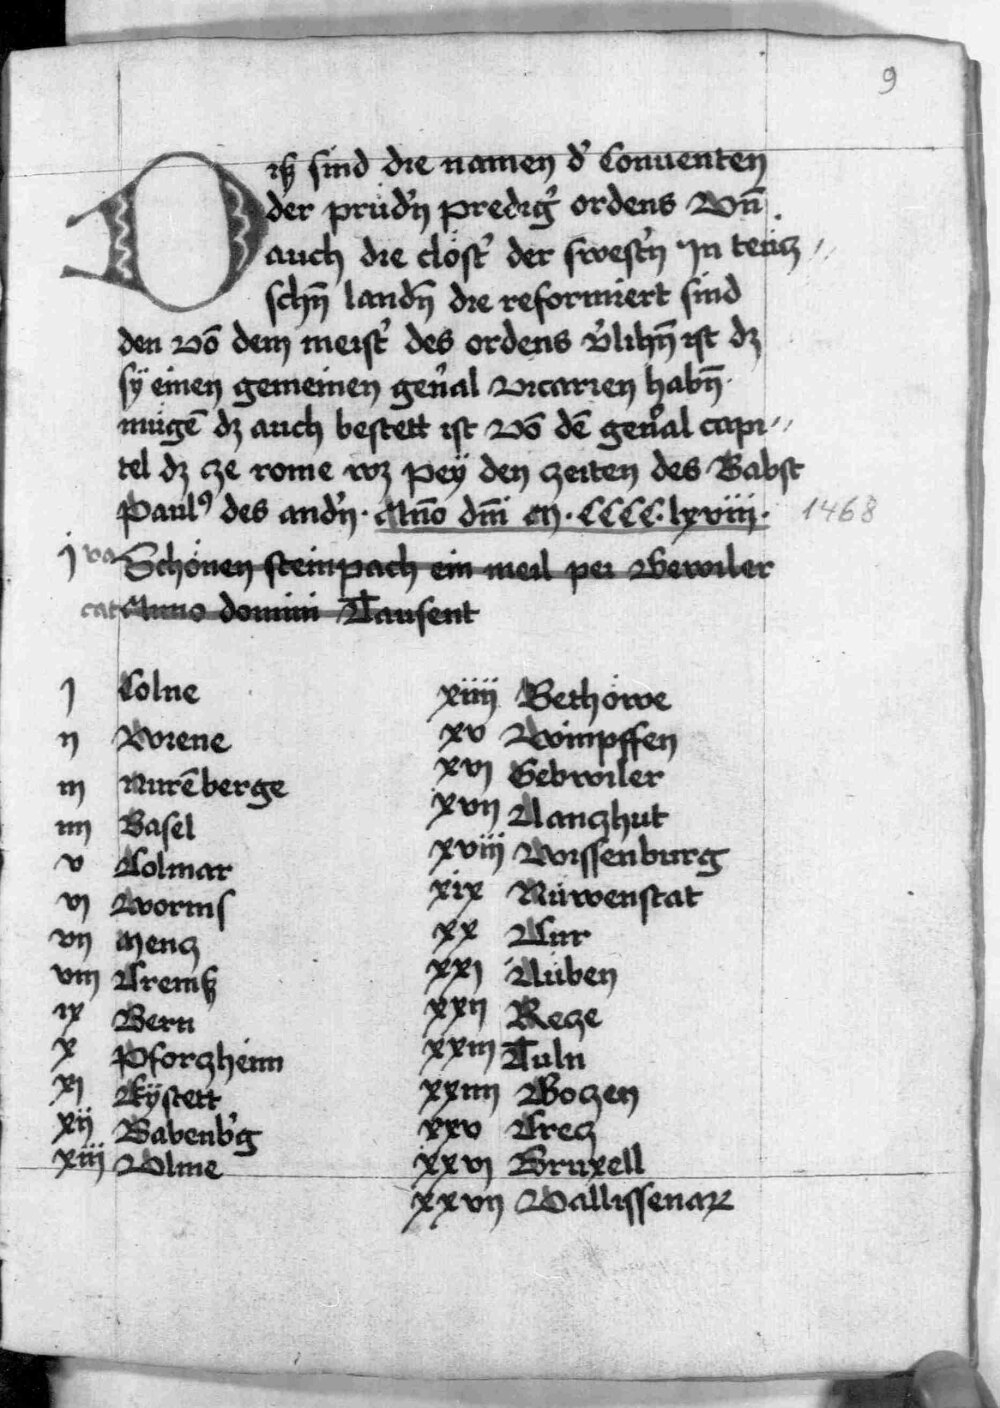 9
Diß sind die namen d' Conuenten
der prüd'n predig' ordens Vn̄
auch die clöst' der swest'n In teücz //
schn̄ landn̄ die reformiert sind
den vō dem meist' des ordens v'lihn̄ ist dz
sÿ einen gemeinen gen'al vicarien habn̄
mügē dz auch bestett ist vō dē gen'al capi //
tel dz ze rome wz peÿ den zeiten des Babst
Paul⁹ des and'n · An̄o dm̄i M · CCCC · lxviii · 1468
j va Schönen steinpach ein meil pei Gewiler
cat Anno domini Tausent
j Colne
ij Wiene
iij Nurēberge
iiij Basel
v Colmar
vj Worms
vij Mencz
viij Cremß
ix Bern
x Pforczheim
xj Eÿstett
xij Babenb'g
xiij Vlme
xiiij Bethöwe
xv Wimpffen
xvj Gebwiler
xvij Lanczhut
xviij Wissenburg
xix Nüwenstat
xx Cur
xxj Lüben
xxij Recze
xxiij Tuln
xxiiij Boczen
xxv Crecz
xxvj Bruxell
xxvij Vallissenar